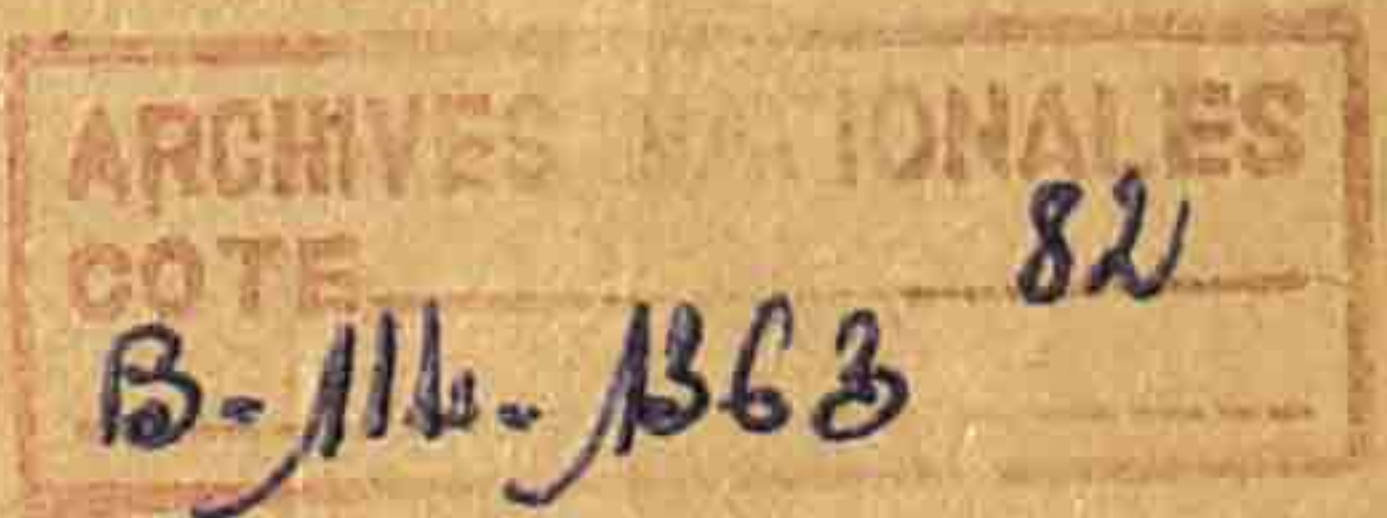 ARCHIVES NATIONALES
COTE 82
B-III-1363